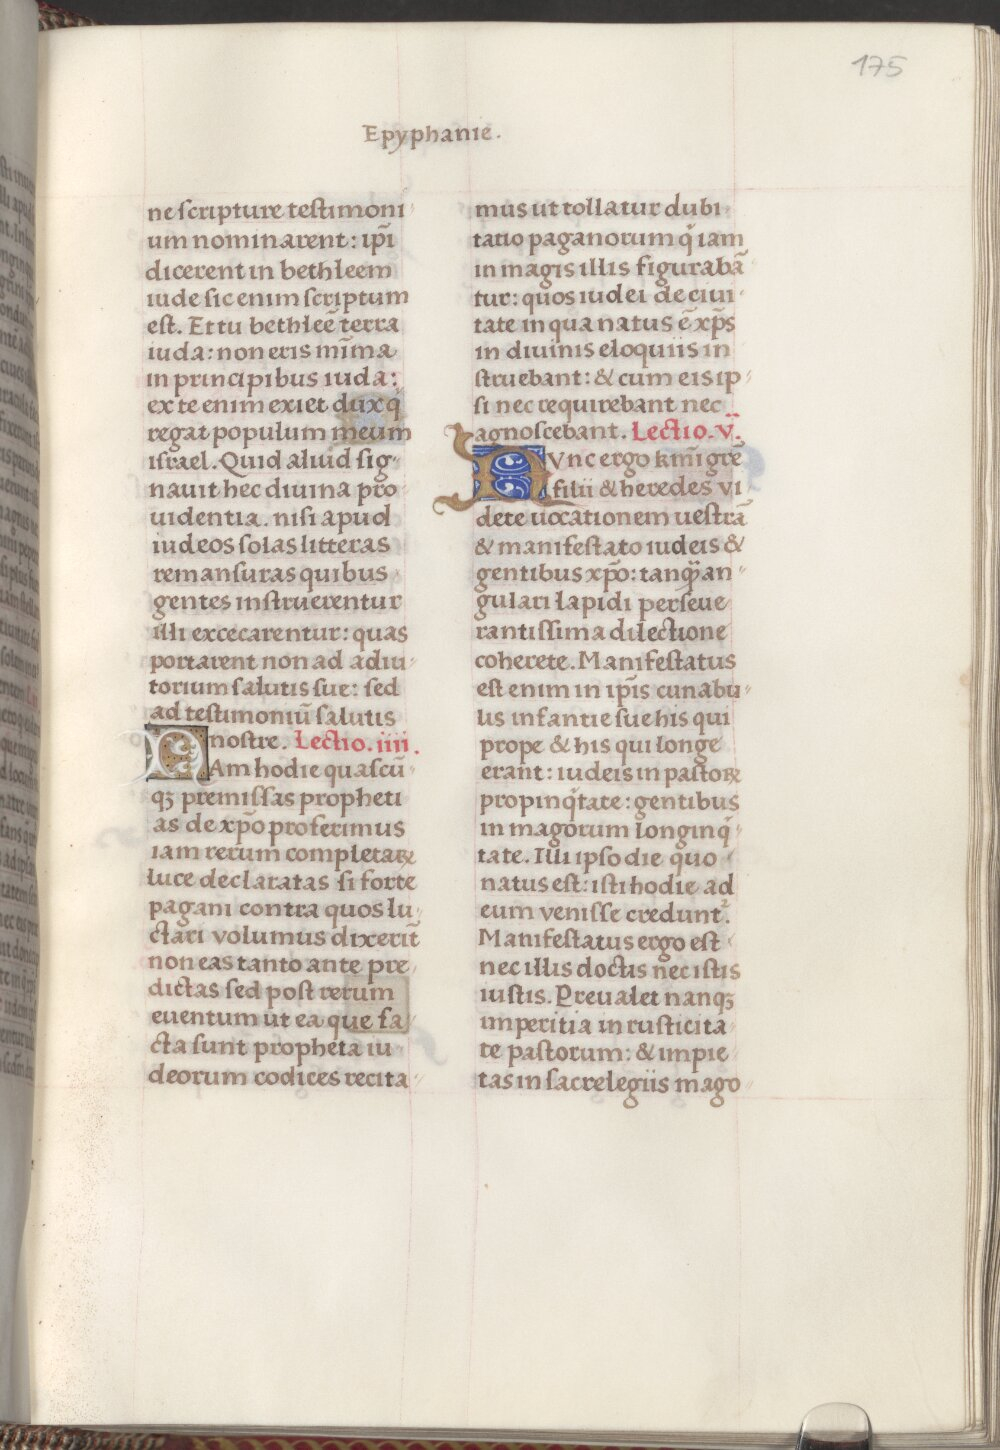 175
Epyphanie.
ne scripture testimoni
um nominarent: ip̅i
dicerent in bethleem
iude sic enim scriptum
est. Et tu bethlee̅ terra
iuda: non eris mi̅ma
in principibus iuda:
ex te enim exiet dux q̅
regat populum meum
israel. Quid aliud sig
nauit hec diuina pro
uidentia. nisi apud
iudeos solas litteras
remansuras quibus
gentes instruerentur
illi excecarentur: quas
portarent non ad adiu
torium salutis sue: sed
ad testimoniu̅ salutis
nostre. Lectio. iiii.
NAm hodie quascu̅
qꝫ premissas propheti
as de xp̅o proferimus
iam rerum completaꝝ
luce declaratas si forte
pagani contra quos lu
ctari volumus dixerit̅
non eas tanto ante pre
dictas sed post rerum
euentum ut ea que fa
cta sunt propheta iu
deorum codices recita
mus ut tollatur dubi
tatio paganorum q̍ iam
in magis illis figuraba̅
tur: quos iudei de ciui
tate in qua natus e̅ xp̅s
in diuinis eloquiis in
struebant: & cum eis ip
si nec requirebant nec
agnoscebant. Lectio. v.
NVnc ergo kmi̅ gre̅
filii & heredes vi
dete uocationem uestra̅
& manifestato iudeis &
gentibus xp̅o: tanq̅ an
gulari lapidi perseue
rantissima dilectione
coherete. Manifestatus
est enim in ip̅is cunabu
lis infantie sue his qui
prope & his qui longe
erant: iudeis in pastoꝝ
propinq̍tate: gentibus
in magorum longinq̍
tate. Illi ipso die quo
natus est: isti hodie ad
eum venisse credunt᷑.
Manifestatus ergo est
nec illis doctis nec istis
iustis. Preualet nanqꝫ
imperitia in rusticita
te pastorum: & impie
tas in sacrelegiis mago